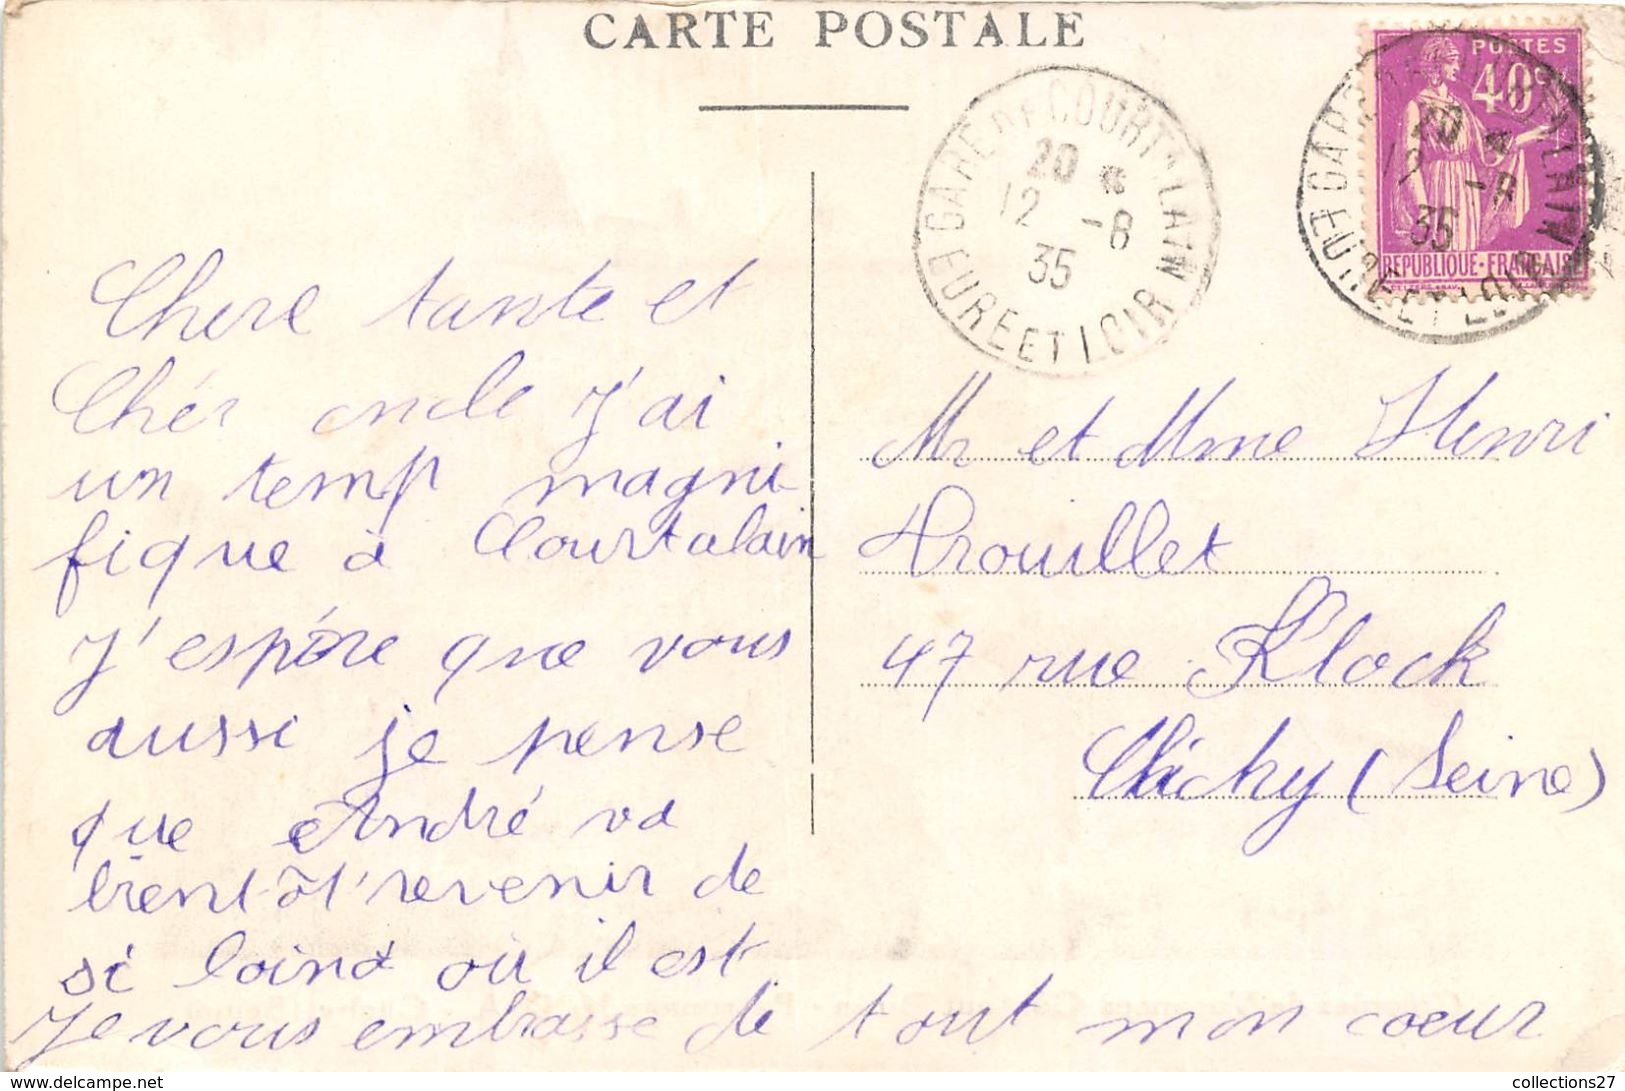 CARTE POSTALE
POSTES
40c
RÉPUBLIQUE-FRANÇAISE
GARE DE COURTALAIN
20 *
12 -8
35
EURE ET LOIR
GARE DE COURTALAIN
20 *
12 -8
35
EURE ET LOIR
Chere tante et
Chér oncle J'ai
un temp magni
fique à Courtalain
J'espére que vous
aussi je pense
que André va
bient-ôt revenir de
si loind où il est
Je vous embrasse de tout mon coeur
Mr et Mme Henri
Drouillet
47 rue Klock
Clichy (Seine)
http://www.delcampe.net
collections27